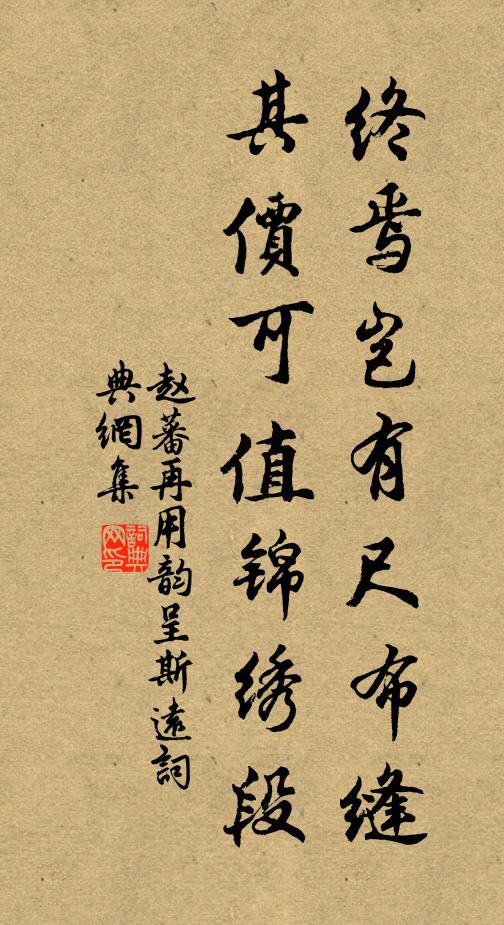 终焉岂有尺布缝
其價可值锦绣段
赵蕃再用韵呈斯遠詞
典網集
詞典
网印